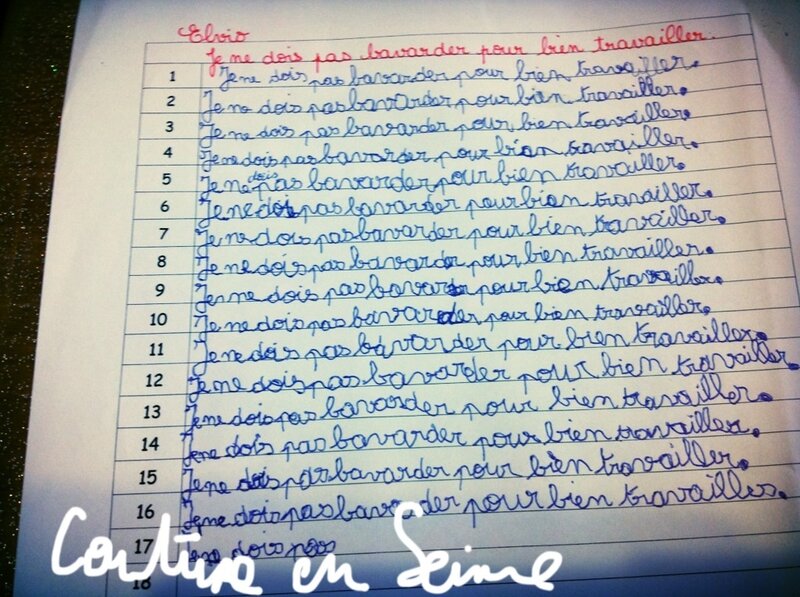 Elvio
Je ne dois pas bavarder pour bien travailler.
1 Je ne dois pas bavarder pour bien travailler.
2 Je ne dois pas bavarder pour bien travailler.
3 Je ne dois pas bavarder pour bien travailler.
4 Je ne dois pas bavarder pour bien travailler.
5 Je ne dois pas bavarder pour bien travailler.
6 Je ne dois pas bavarder pour bien travailler.
7 Je ne dois pas bavarder pour bien travailler.
8 Je ne dois pas bavarder pour bien travailler.
9 Je ne dois pas bavarder pour bien travailler.
10 Je ne dois pas bavarder pour bien travailler.
11 Je ne dois pas bavarder pour bien travailler.
12 Je ne dois pas bavarder pour bien travailler.
13 Je ne dois pas bavarder pour bien travailler.
14 Je ne dois pas bavarder pour bien travailler.
15 Je ne dois pas bavarder pour bien travailler.
16 Je ne dois pas bavarder pour bien travailler.
17 Je ne dois pas
18
en Seine